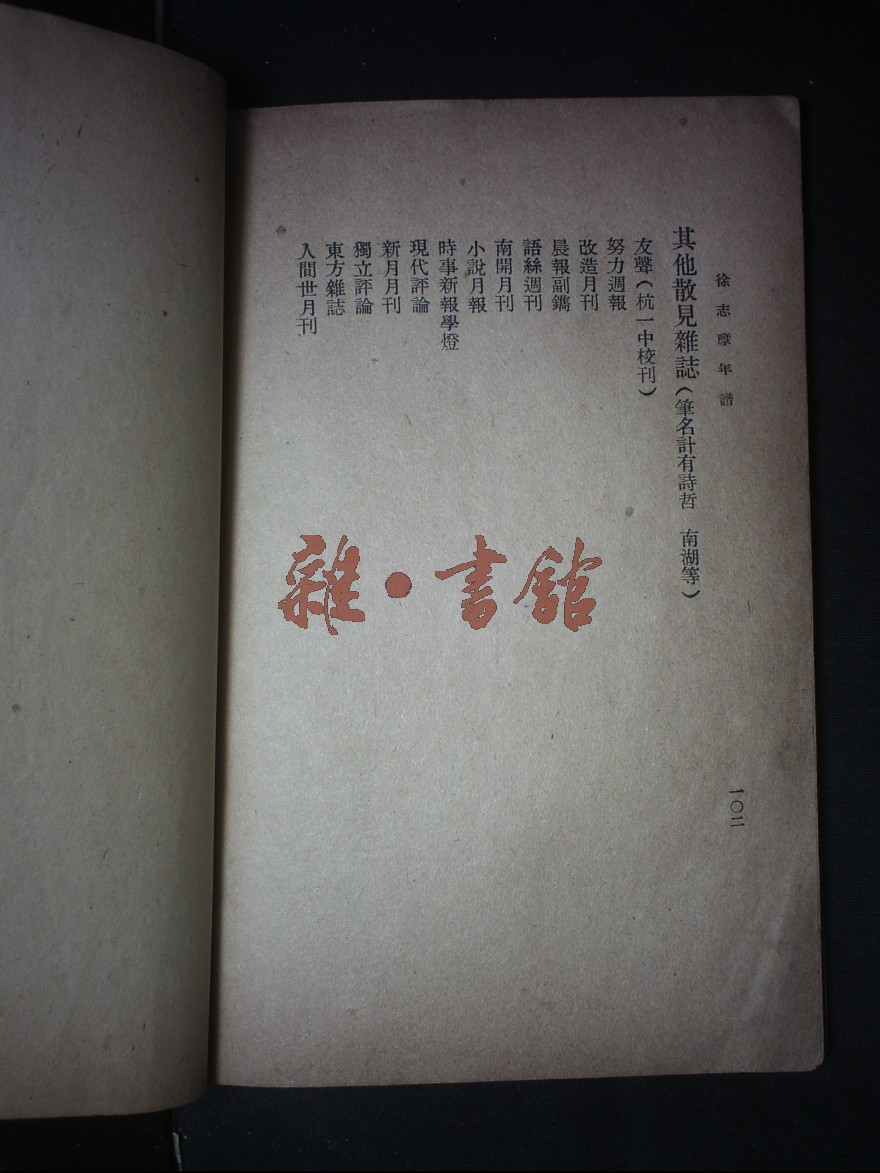 徐志摩年譜
其他散見雜誌（筆名計有詩哲　南湖等）
友聲（杭一中校刊）
努力週報
改造月刊
晨報副鐫
語絲週刊
南開月刊
小說月報
時事新報學燈
現代評論
新月月刊
獨立評論
東方雜誌
人間世月刊
一〇二
雜·書館